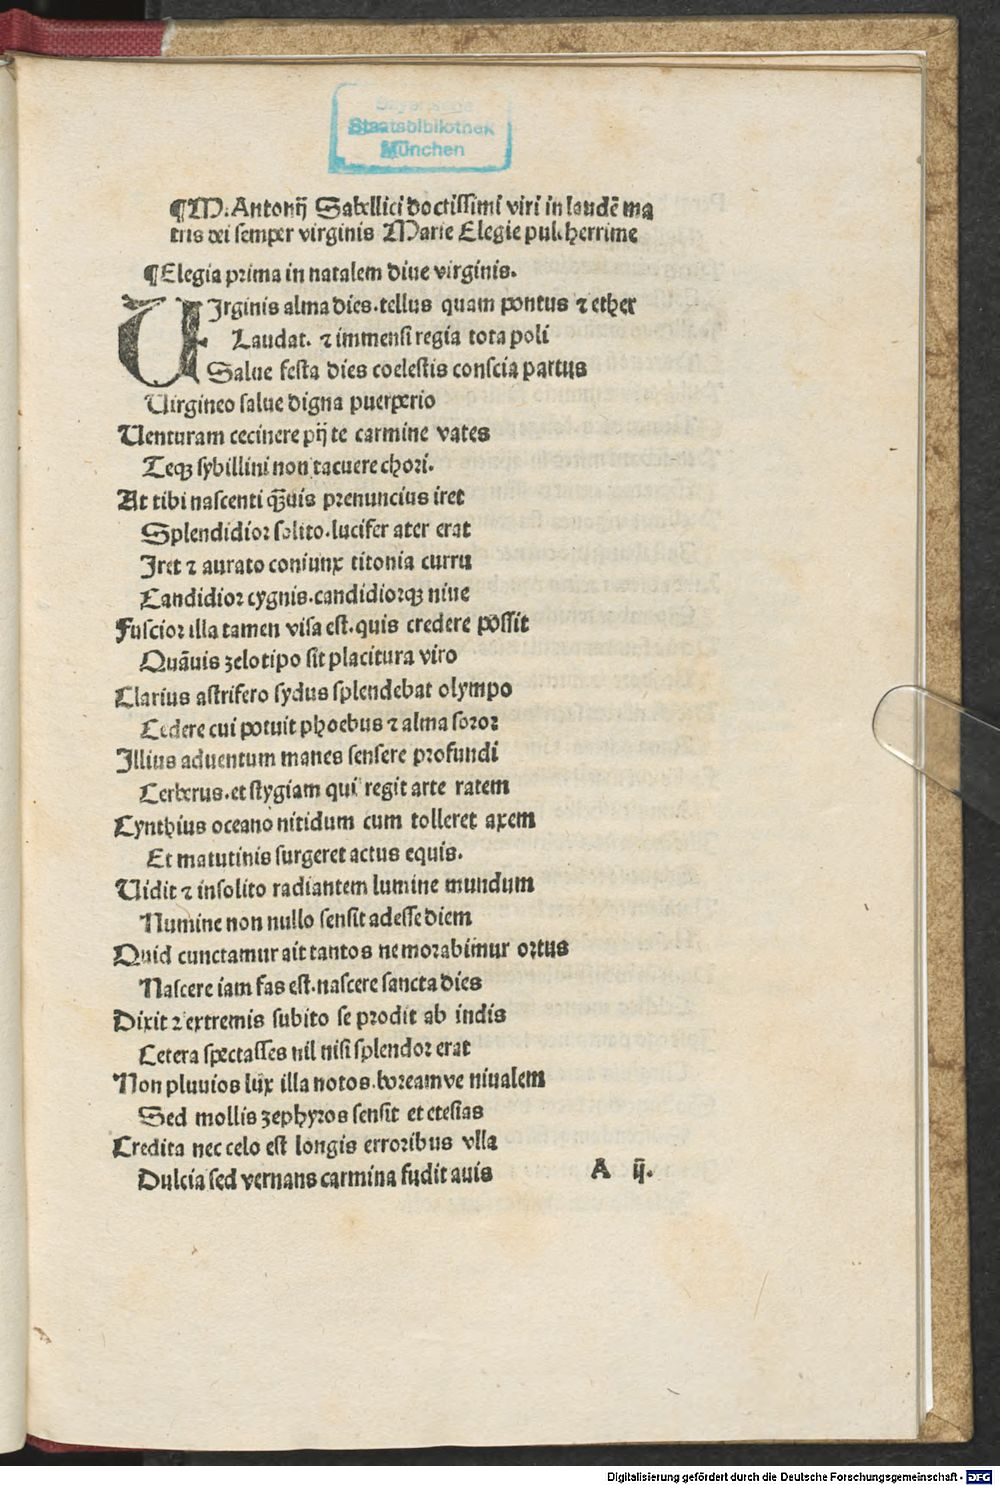 Bayerische
Staatsbibliothek
München
¶M. Antonij Sabellici doctissimi viri in laudē ma
tris dei semper virginis Marie Elegie pulcherrime
¶Elegia prima in natalem diue virginis.
UIrginis alma dies. tellus quam pontus ⁊ ether
Laudat. ⁊ immensi regia tota poli
Salue festa dies coelestis conscia partus
Uirgineo salue digna puerperio
Uenturam cecinere pij te carmine vates
Teqꝫ sybillini non tacuere chori.
At tibi nascenti qᷓuis prenuncius iret
Splendidior solito. lucifer ater erat
Iret ⁊ aurato coniunx titonia curru
Candidior cygnis. candidiorqꝫ niue
Fuscior illa tamen visa est. quis credere possit
Quāuis zelotipo sit placitura viro
Clarius astrifero sydus splendebat olympo
Cedere cui potuit phoebus ⁊ alma soror
Illius aduentum manes sensere profundi
Cerberus. et stygiam qui regit arte ratem
Cynthius oceano nitidum cum tolleret axem
Et matutinis surgeret actus equis.
Uidit ⁊ insolito radiantem lumine mundum
Numine non nullo sensit adesse diem
Quid cunctamur ait tantos ne morabimur ortus
Nascere iam fas est. nascere sancta dies
Dixit ⁊ extremis subito se prodit ab indis
Cetera spectasses nil nisi splendor erat
Non pluuios lux illa notos. boreamve niualem
Sed mollis zephyros sensit et etesias
Credita nec celo est longis erroribus vlla
Dulcia sed vernans carmina fudit auis
A ij.
Digitalisierung gefördert durch die Deutsche Forschungsgemeinschaft - DFG